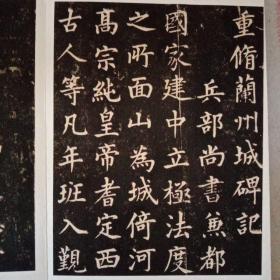 重脩蘭州城碑記
兵部尚書兼都
國家建中立極法度
之所面山為城倚河
髙宗純皇帝者定西
古人等凡年班入覲